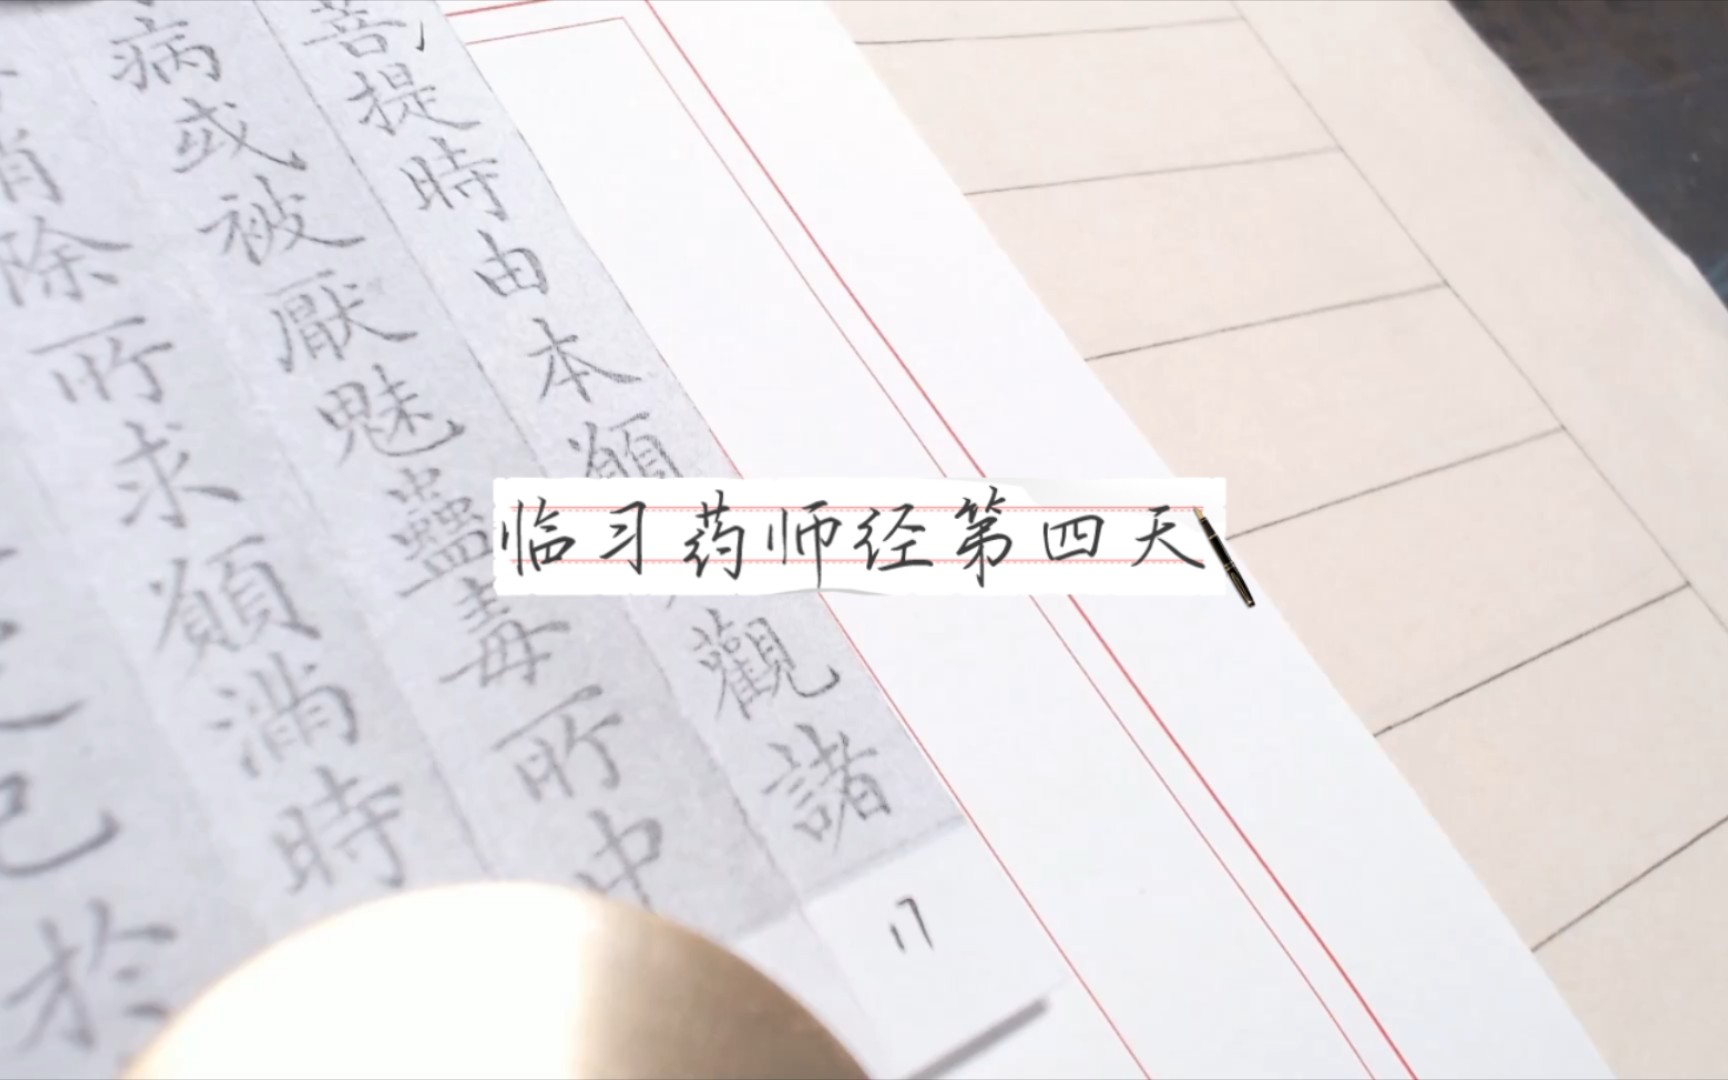 菩提時由本願
觀諸
病或被厭魅蠱毒所中
消除所求願滿時
已於
17
临习药师经第四天